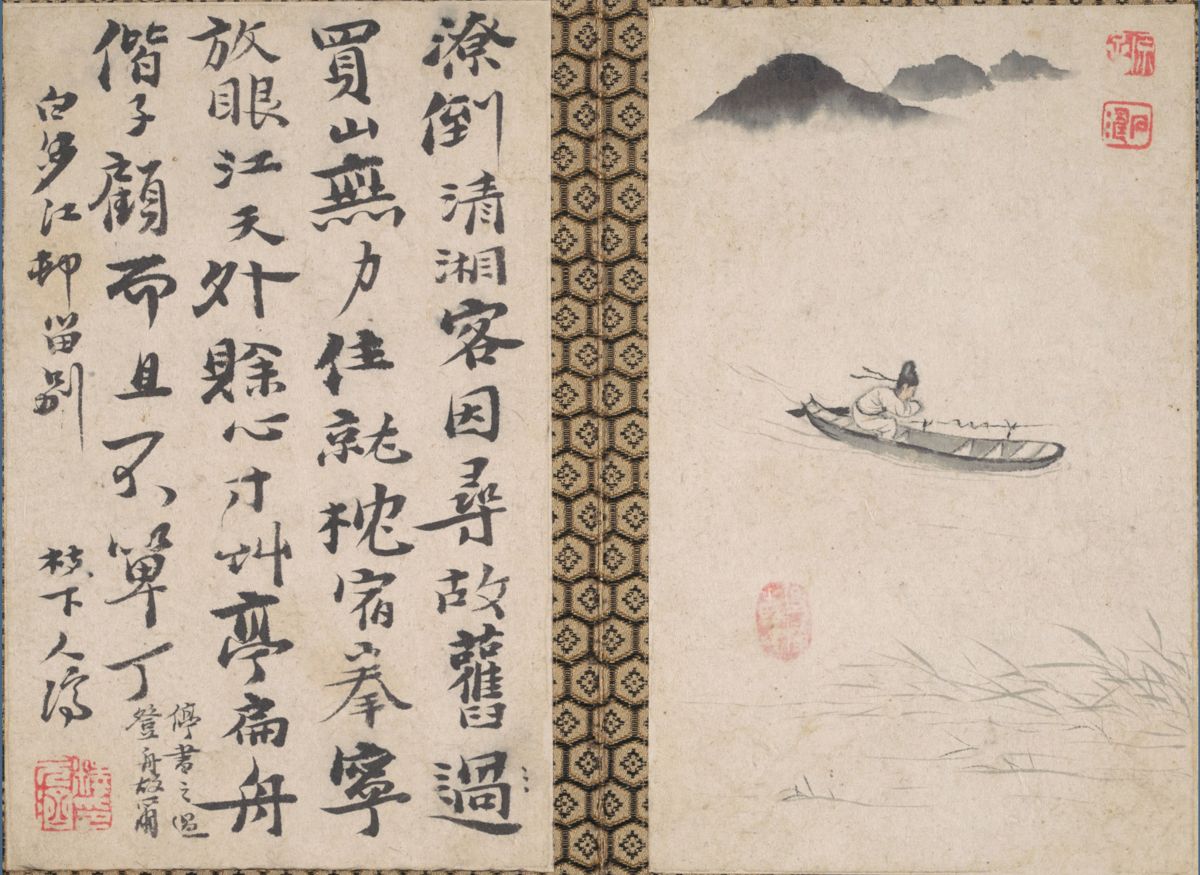 潦倒清湘客因尋故舊過
買山無力住就枕宿拳寧
放眼江天外賒心寸艸亭扁舟
偕子顧而且不單丁
停書之過
登舟故爾
白沙江邨留別 枝下人濟